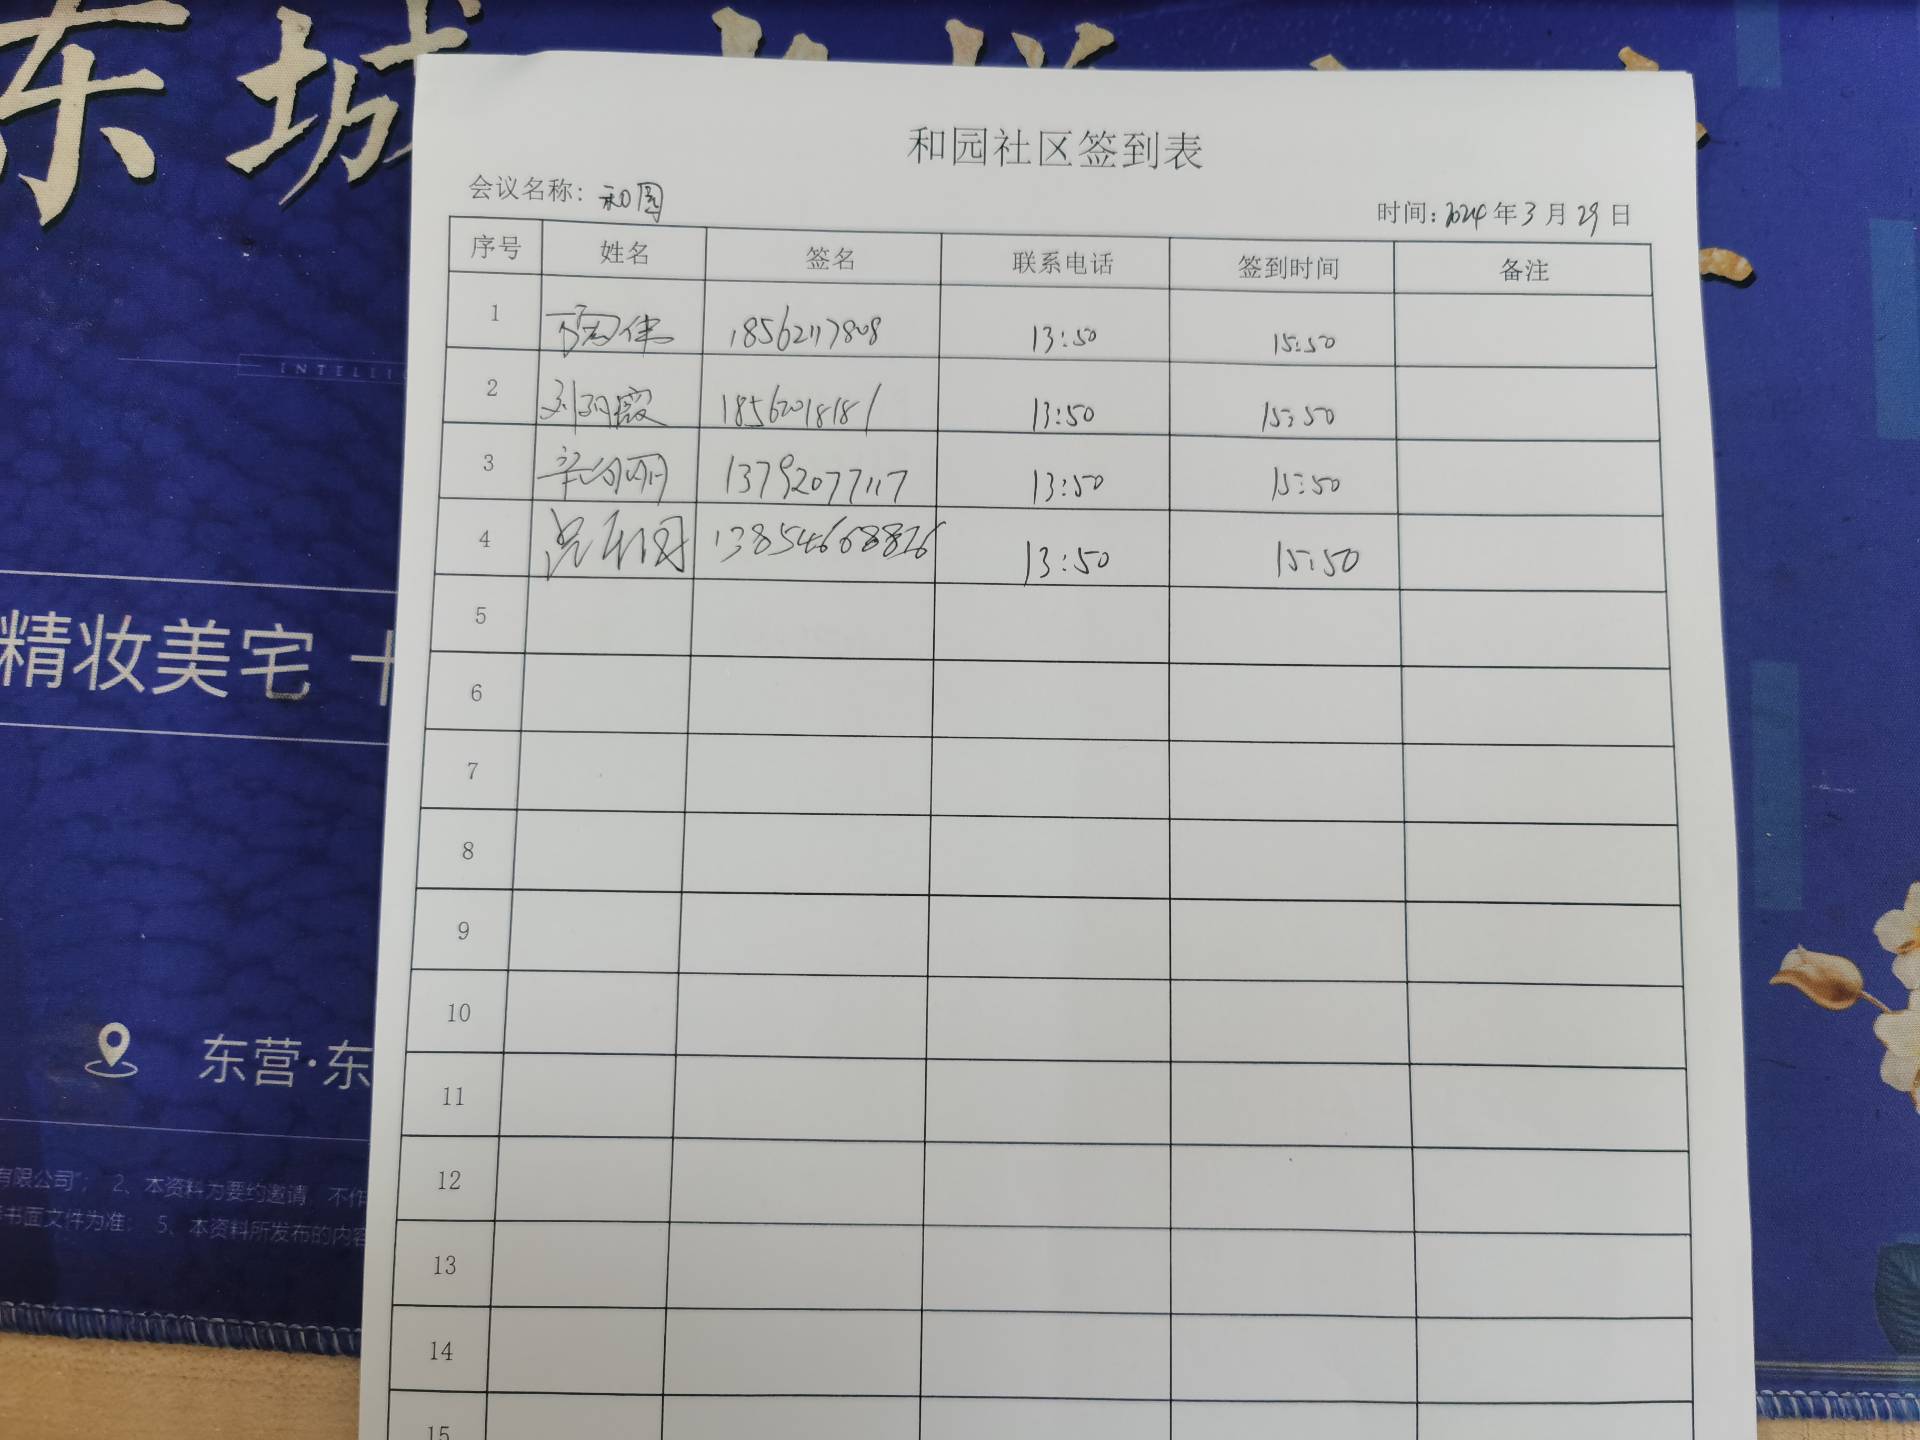 东城
INTELLI
精妆美宅 十
东营·东
有限公司”； 2、本资料为要约邀请，不作
书面文件为准； 5、本资料所发布的内容
和园社区签到表
会议名称：和园 时间：2024年3月29日
序号 姓名 签名 联系电话 签到时间 备注
1 18562117808 13:50 15:50
2 刘丽霞 18562018181 13:50 15:50
3 13792077117 13:50 15:50
4 13854668826 13:50 15:50
5
6
7
8
9
10
11
12
13
14
15